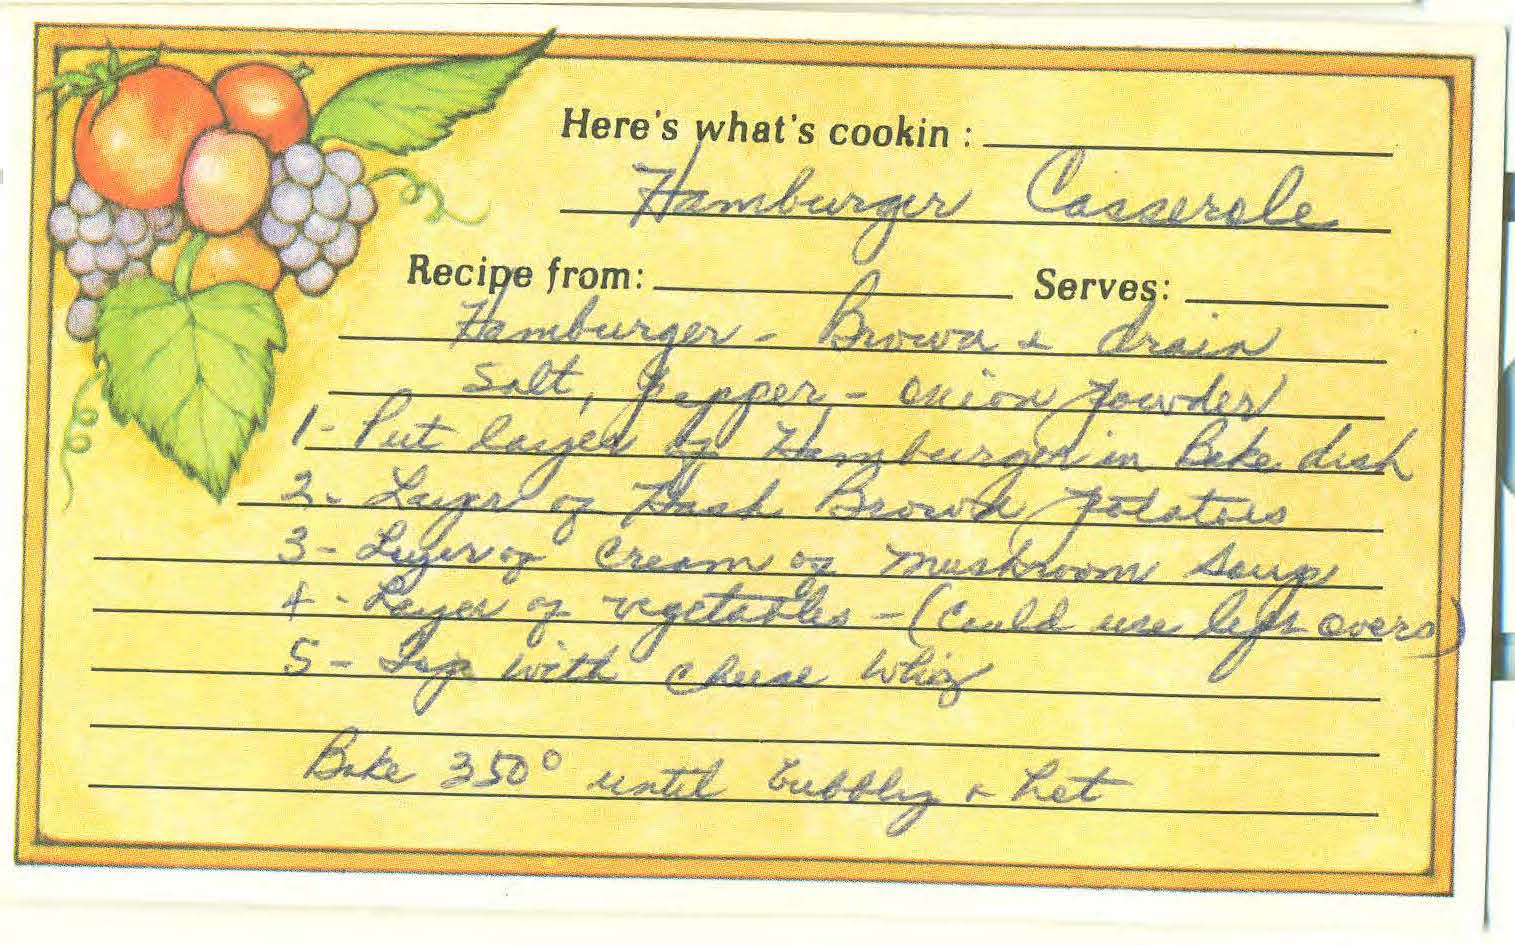 Here's what's cookin :
Hamburger Casserole
Recipe from: Serves:
Hamburger - Brown & drain
Salt, pepper, - onion powder
1- Put layer of Hamburger in Bake dish
2- Layer of Hash Brown potatoes
3- Layer of Cream of Mushroom Soup
4- Layer of vegetables - (Could use left overs)
5- Top with cheese whiz
Bake 350° until bubbly & hot